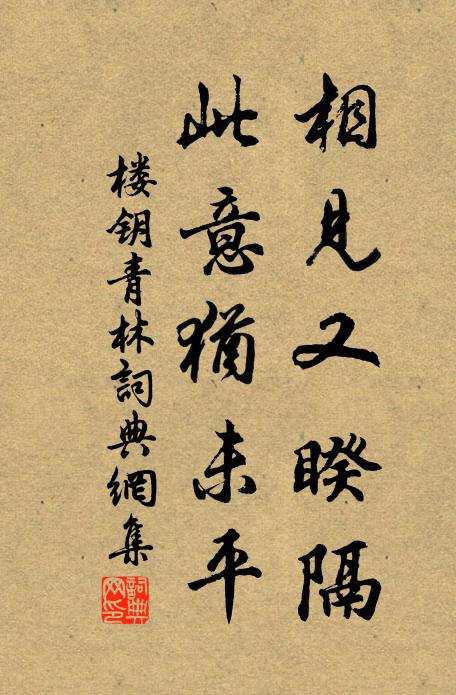 相見又睽隔
此意猶未平
楼钥青林詞典網集
詞典网印